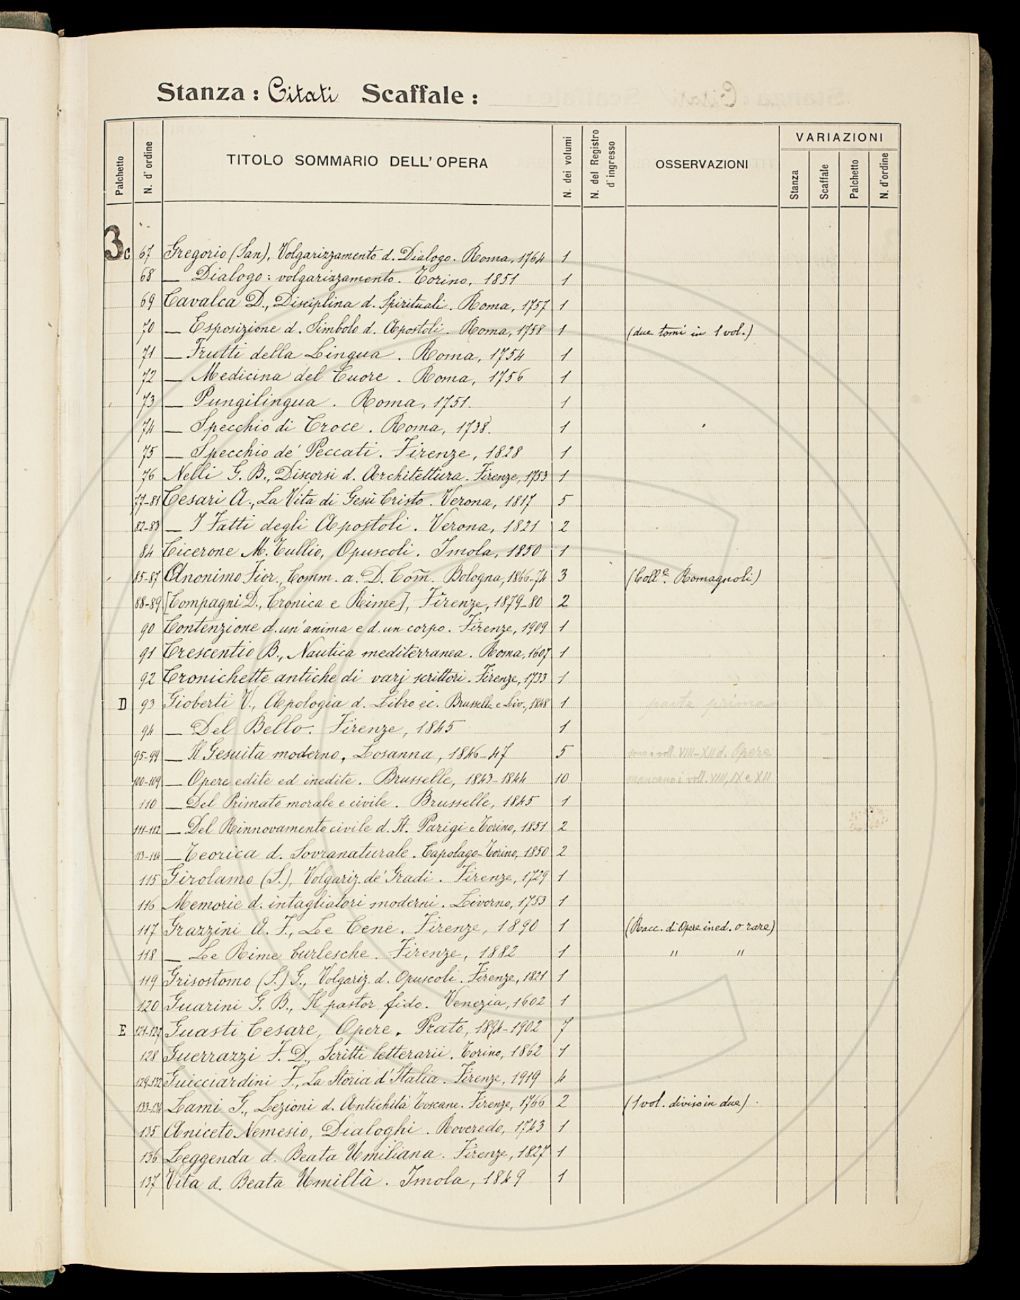 Stanza: Citati Scaffale:
Palchetto N. d'ordine TITOLO SOMMARIO DELL'OPERA N. dei volumi N. del Registro d'ingresso OSSERVAZIONI VARIAZIONI Stanza Scaffale Palchetto N. d'ordine
3c 67 Gregorio (San), Volgarizzamento d. Dialogo. Roma, 1764 1
68 — Dialogo: volgarizzamento. Torino, 1851 1
69 Cavalca D., Disciplina d. Spirituali. Roma, 1757 1
70 — Esposizione d. Simbolo d. Apostoli. Roma, 1758 1 (due tomi in 1 vol.)
71 — Frutti della Lingua. Roma, 1754 1
72 — Medicina del Cuore. Roma, 1756 1
73 — Pungilingua. Roma, 1751. 1
74 — Specchio di Croce. Roma, 1738. 1
75 — Specchio de' Peccati. Firenze, 1828 1
76 Nelli G. B., Discorsi d. Architettura. Firenze, 1753 1
77-81 Cesari A., La Vita di Gesù Cristo. Verona, 1817 5
82-83 — I Fatti degli Apostoli. Verona, 1821 2
84 Cicerone M. Tullio, Opuscoli. Imola, 1850 1
85-87 Anonimo Fior., Comm. a. D. Com̃. Bologna, 1866-74 3 (Coll.e Romagnoli)
88-89 [Compagni D., Cronica e Rime], Firenze, 1879-80 2
90 Contenzione d. un'anima e d. un corpo. Firenze, 1909 1
91 Crescentio B., Nautica mediterranea. Roma, 1607 1
92 Cronichette antiche di varj scrittori. Firenze, 1733 1
D 93 Gioberti V., Apologia d. Libro ec. Brusselle e Liv., 1848 1 parte prima
94 — Del Bello. Firenze, 1845 1
95-99 — Il Gesuita moderno. Losanna, 1846-47 5 voll. VIII-XII d. Opere
100-109 — Opere edite ed inedite. Brusselle, 1843-1844 10 mancano i voll. VIII, IX e XII
110 — Del Primato morale e civile. Brusselle, 1845 1
111-112 — Del Rinnovamento civile d. It. Parigi e Torino, 1851 2
113-114 — Teorica d. Sovranaturale. Capolago-Torino, 1850 2
115 Girolamo (S.), Volgariz. de' Gradi. Firenze, 1729 1
116 Memorie d. intagliatori moderni. Livorno, 1753 1
117 Grazzini A. F., Le Cene. Firenze, 1890 1 (Racc. di Opere ined. o rare)
118 — Le Rime burlesche. Firenze, 1882 1 " "
119 Grisostomo (S.) G., Volgariz. d. Opuscoli. Firenze, 1821 1
120 Guarini G. B., Il pastor fido. Venezia, 1602 1
E 121-127 Guasti Cesare, Opere. Prato, 1894-1902 7
128 Guerrazzi F. D., Scritti letterarii. Torino, 1862 1
129-132 Guicciardini F., La Storia d'Italia. Firenze, 1919 4
133-134 Lami G., Lezioni d. Antichità Toscane. Firenze, 1766 2 (1 vol. diviso in due).
135 Aniceto Nemesio, Dialoghi. Roveredo, 1743 1
136 Leggenda d. Beata Umiliana. Firenze, 1827 1
137 Vita d. Beata Umiltà. Imola, 1849 1